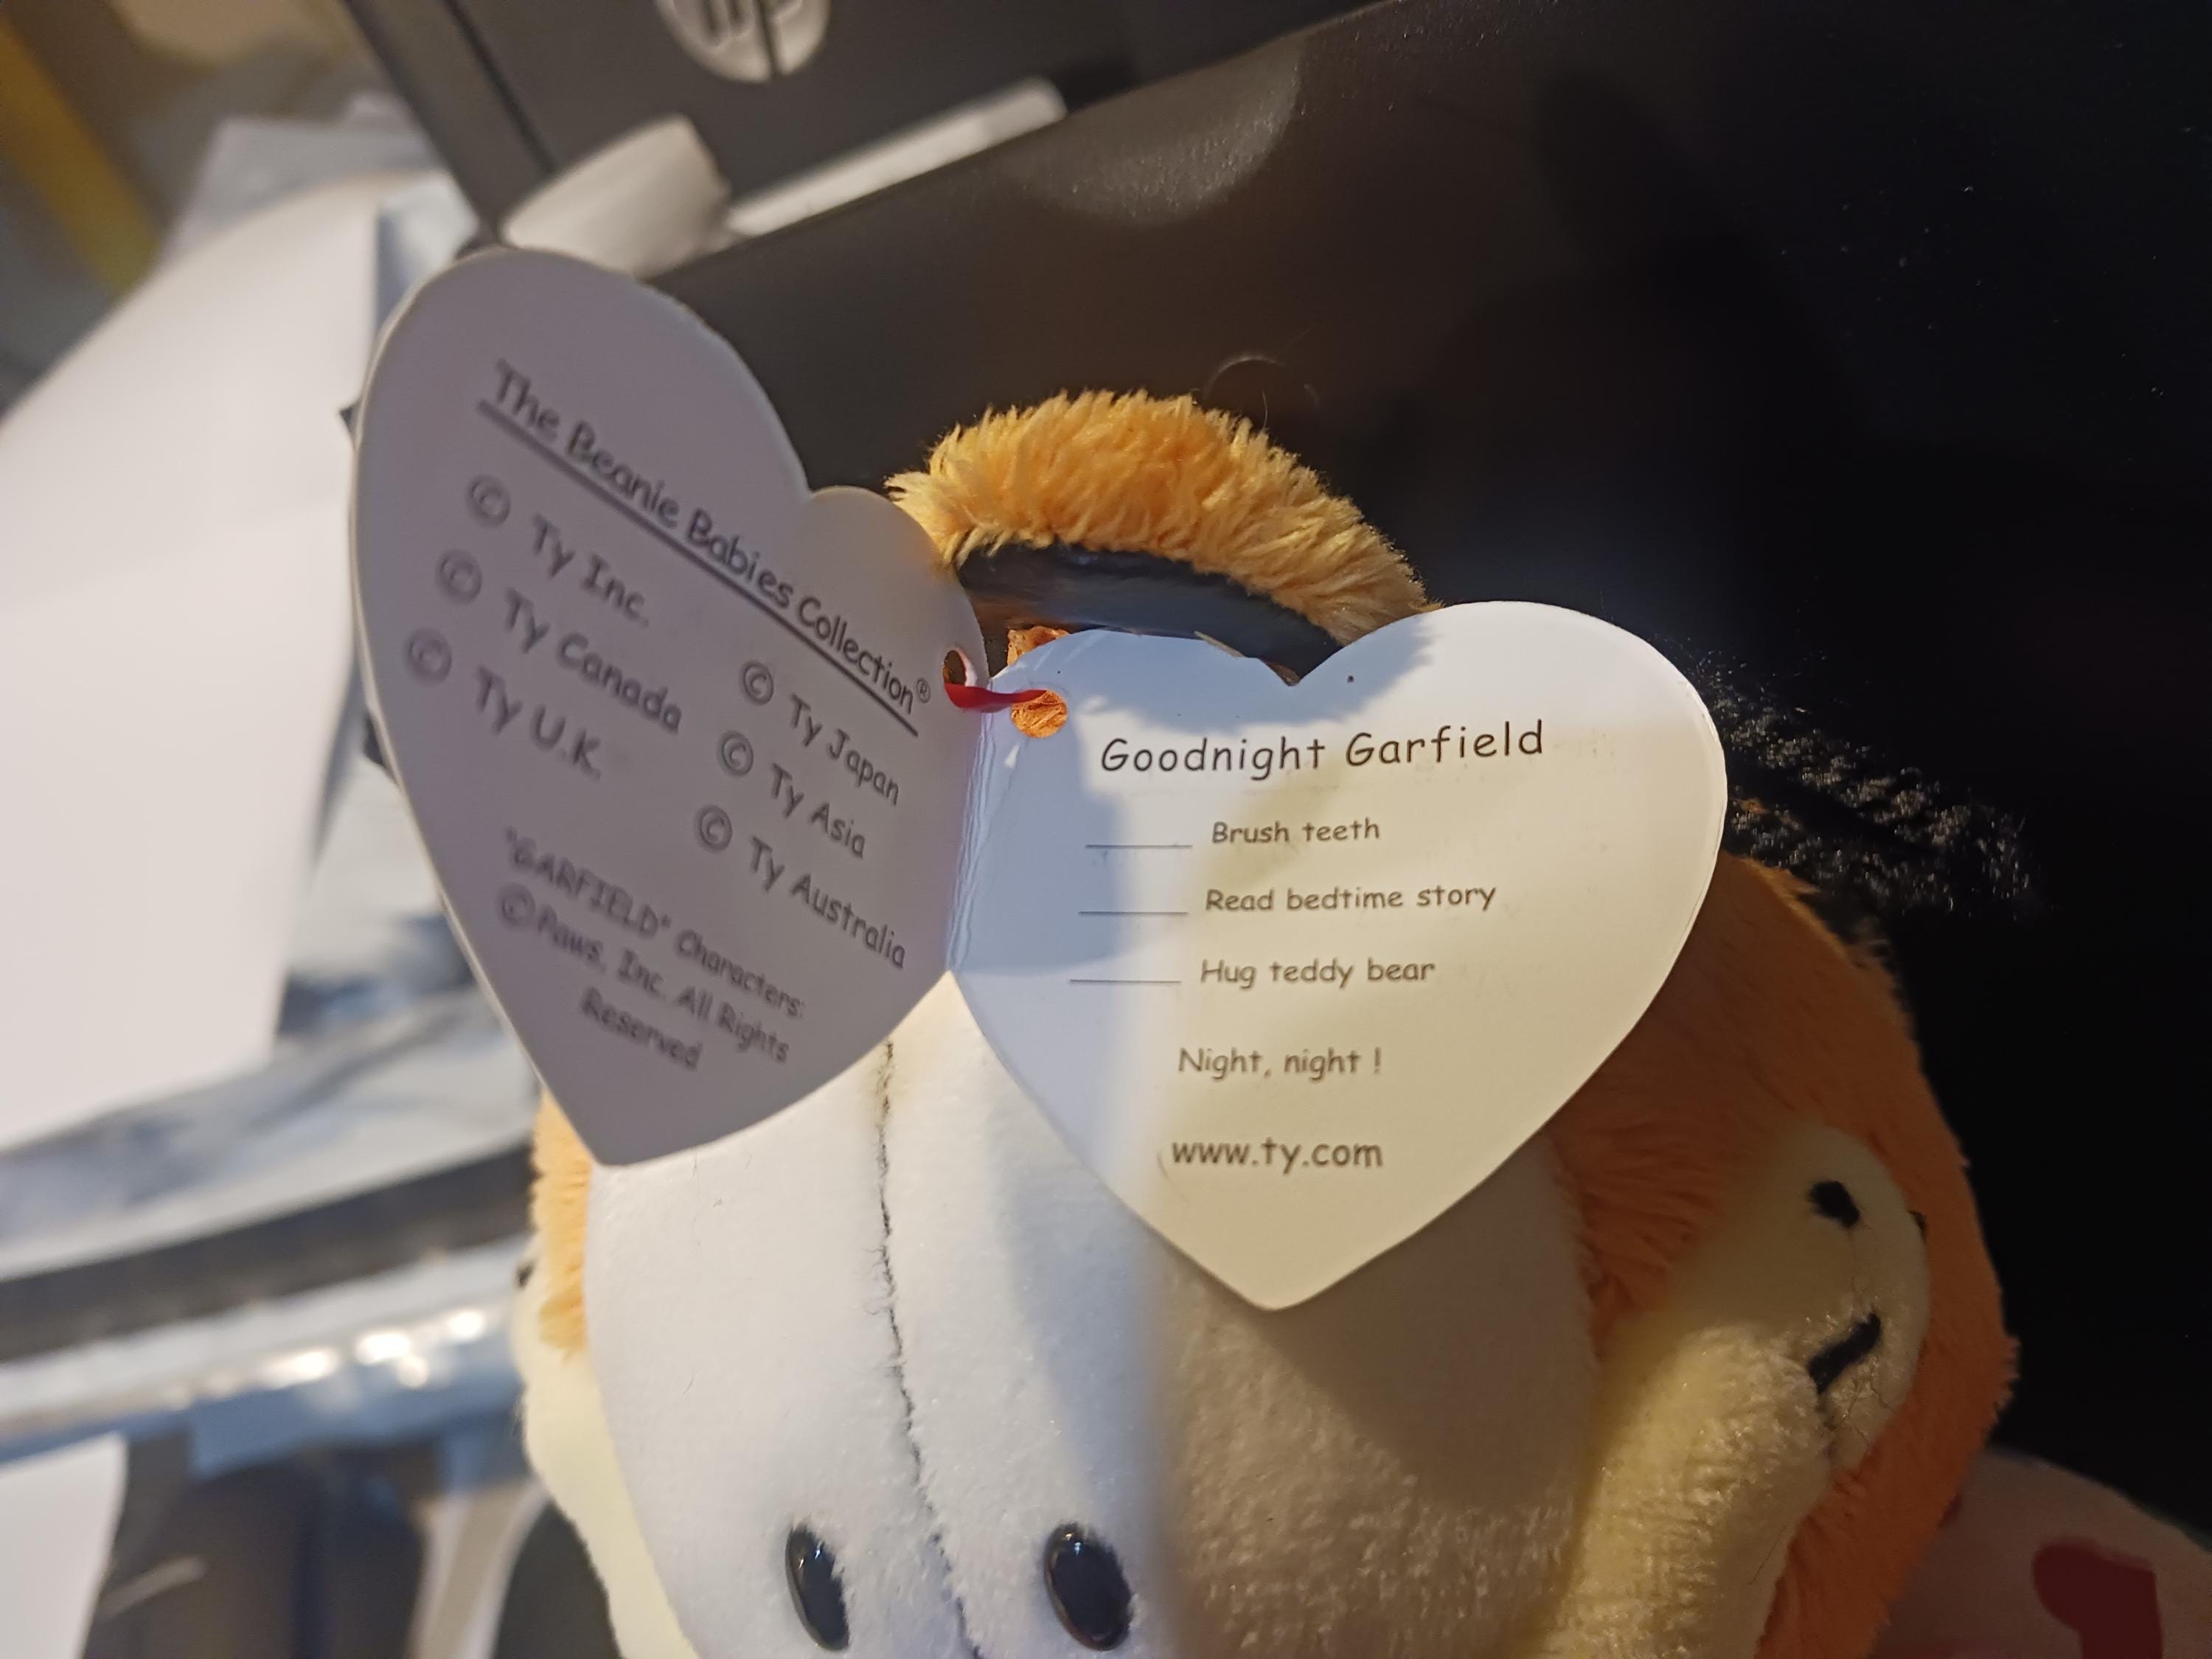 The Beanie Babies Collection®
© Ty Inc.
© Ty Canada
© Ty U.K.
© Ty Japan
© Ty Asia
© Ty Australia
"GARFIELD" Characters:
© Paws, Inc. All Rights
Reserved
Goodnight Garfield
_____ Brush teeth
_____ Read bedtime story
_____ Hug teddy bear
Night, night !
www.ty.com